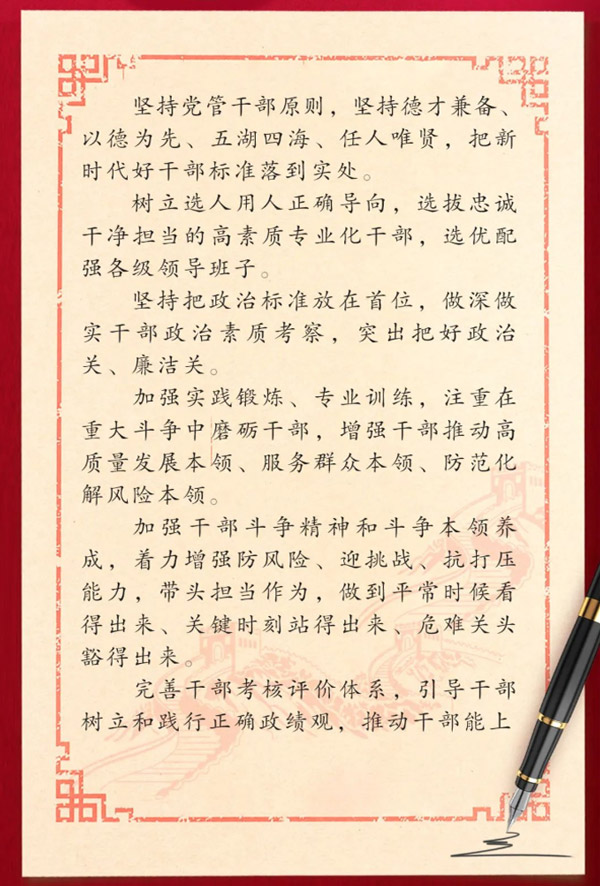 坚持党管干部原则，坚持德才兼备、
以德为先、五湖四海、任人唯贤，把新
时代好干部标准落到实处。
树立选人用人正确导向，选拔忠诚
干净担当的高素质专业化干部，选优配
强各级领导班子。
坚持把政治标准放在首位，做深做
实干部政治素质考察，突出把好政治
关、廉洁关。
加强实践锻炼、专业训练，注重在
重大斗争中磨砺干部，增强干部推动高
质量发展本领、服务群众本领、防范化
解风险本领。
加强干部斗争精神和斗争本领养
成，着力增强防风险、迎挑战、抗打压
能力，带头担当作为，做到平常时候看
得出来、关键时刻站得出来、危难关头
豁得出来。
完善干部考核评价体系，引导干部
树立和践行正确政绩观，推动干部能上